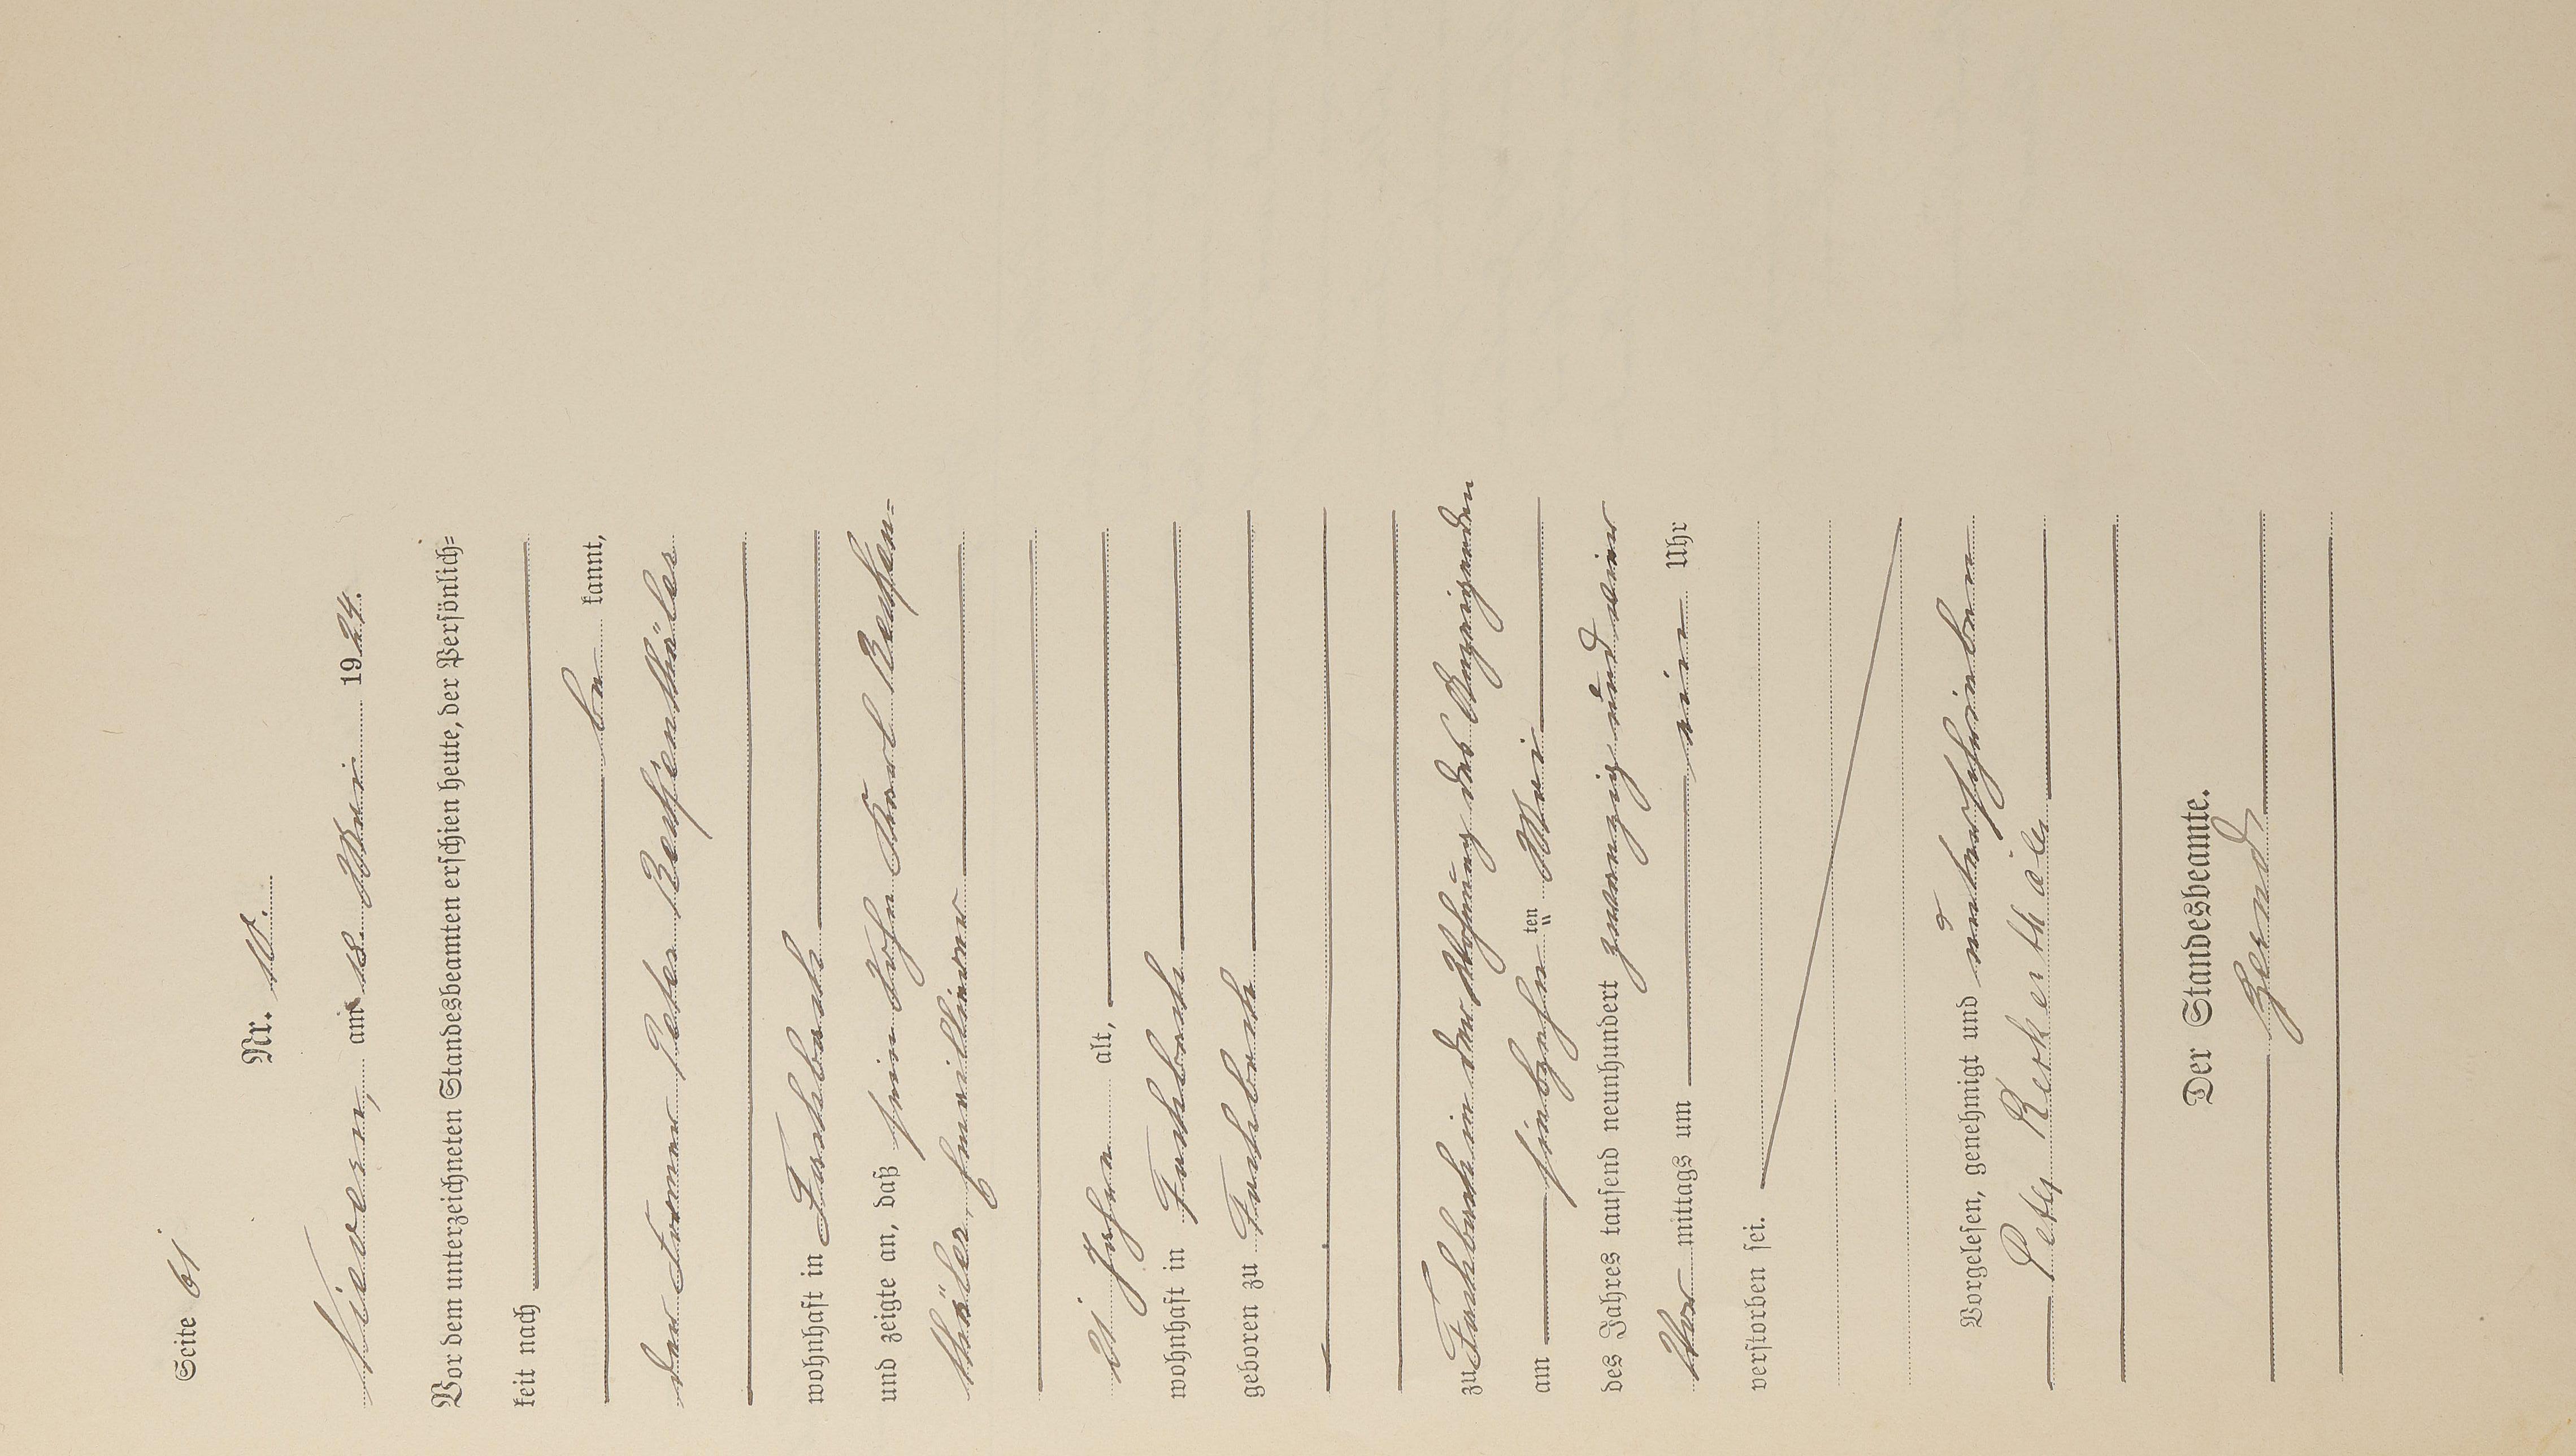 Seite 61
Nr. 10.
Nievern, am 18. Mai 1924.
Vor dem unterzeichneten Standesbeamten erschien heute, der Persönlich=
keit nach
be kannt,
der Former Peter Becken­thäler
wohnhaft in Fachbach
und zeigte an, daß sein Sohn Karl
thäler,
21 Jahre alt,
wohnhaft in Fachbach
geboren zu Fachbach
zu Fachbach in der Wohnung des Anzeigenden
am siebzehn ten Mai
des Jahres tausend neunhundert zwanzig und vier
Vor mittags um ein Uhr
verstorben sei.
Vorgelesen, genehmigt und unterschrieben
Peter
Der Standesbeamte.